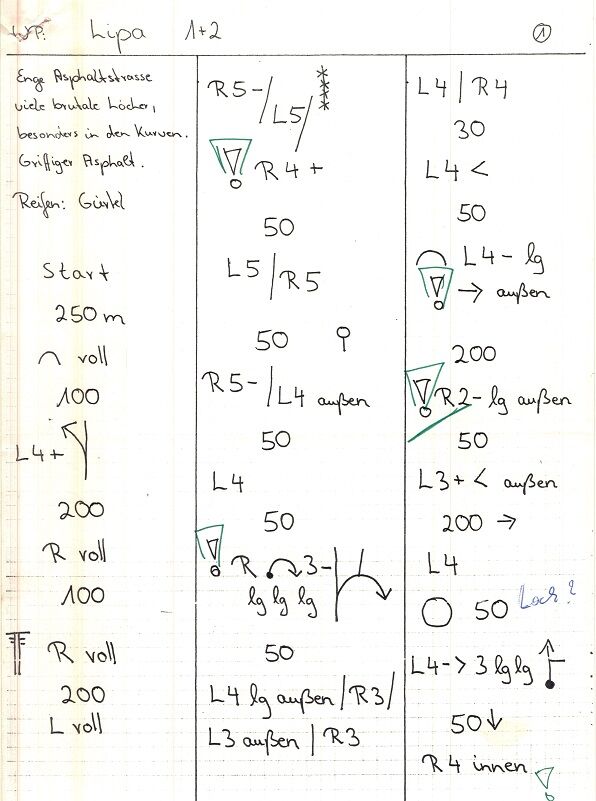 W.P. Lipa 1+2 ①
Enge Asphaltstrasse
viele brutale Löcher,
besonders in den Kurven.
Griffiger Asphalt.
Reifen: Gürtel
Start
250 m
voll
100
L4+
200
R voll
100
R voll
200
L voll
R5-/L5/
! R4+
50
L5/R5
50
R5-/L4 außen
50
L4
50
! R 3-
lg lg lg
50
L4 lg außen/R3/
L3 außen/R3
L4 | R4
30
L4 <
50
L4- lg
! → außen
200
! R2- lg außen
50
L3+ < außen
200 →
L4
50 Loch?
L4-> 3 lg lg
50 ↓
R4 innen !